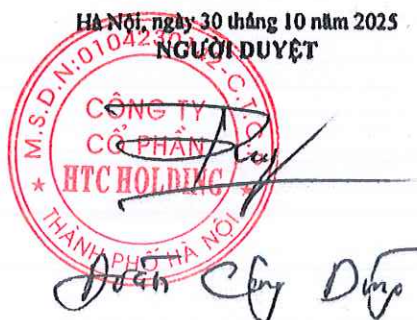 Hà Nội, ngày 30 tháng 10 năm 2025
NGƯỜI DUYỆT
M.S.D.N:0104230742-C.T.C.P
CÔNG TY
CỔ PHẦN
HTC HOLDING
THÀNH PHỐ HÀ NỘI
Đoàn Công Dũng